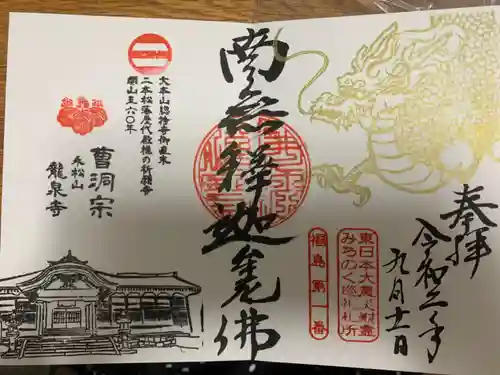 奉拝
令和二年
九月十一日
東日本大震災慰霊
みちのく巡礼札所
福島第一番
南無釋迦牟尼佛
大本山総持寺御直末
二本松藩歴代殿様の祈願寺
開山至六〇年
曹洞宗
永松山
龍泉寺